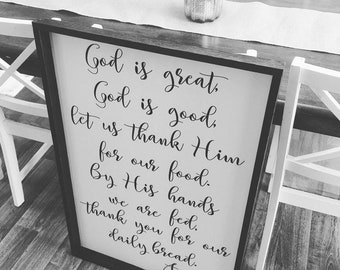 God is great,
God is good,
let us thank Him
for our food.
By His hands
we are fed,
thank you for our
daily bread.